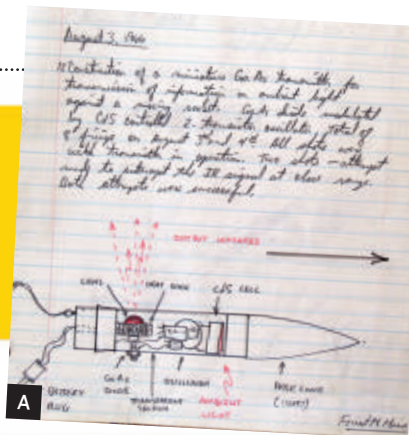 August 3, 1966
1) Construction of a miniature GaAs transmitter for
transmission of information on ambient light
against a moving rocket. GaAs diode modulated
by CdS controlled 2-transistor oscillator. Total of
firings on August 3rd and 4th. All shots
with transmitter in operation. Two shots - attempt
made to intercept the IR signal at close range.
Both attempts were successful.
OUTPUT INFRARED
LENS
HEAT SINK
CdS CELL
GaAs
DIODE
TRANSPARENT
SECTION
OSCILLATOR
AMBIENT
LIGHT
NOSE CONE
BATTERY
PLUG
A
Forrest M. Mims